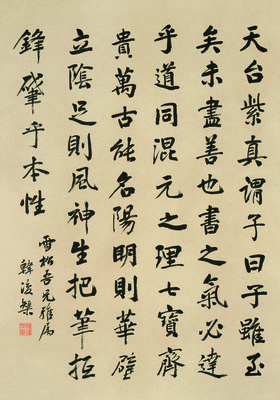 天台紫真謂予曰子雖至
矣未盡善也書之氣必達
乎道同混元之理七寶齊
貴萬古能名陽明則華壁
立陰足則風神生把筆抵
鋒肇乎本性
雪松吾兄雅屬
韓復榘